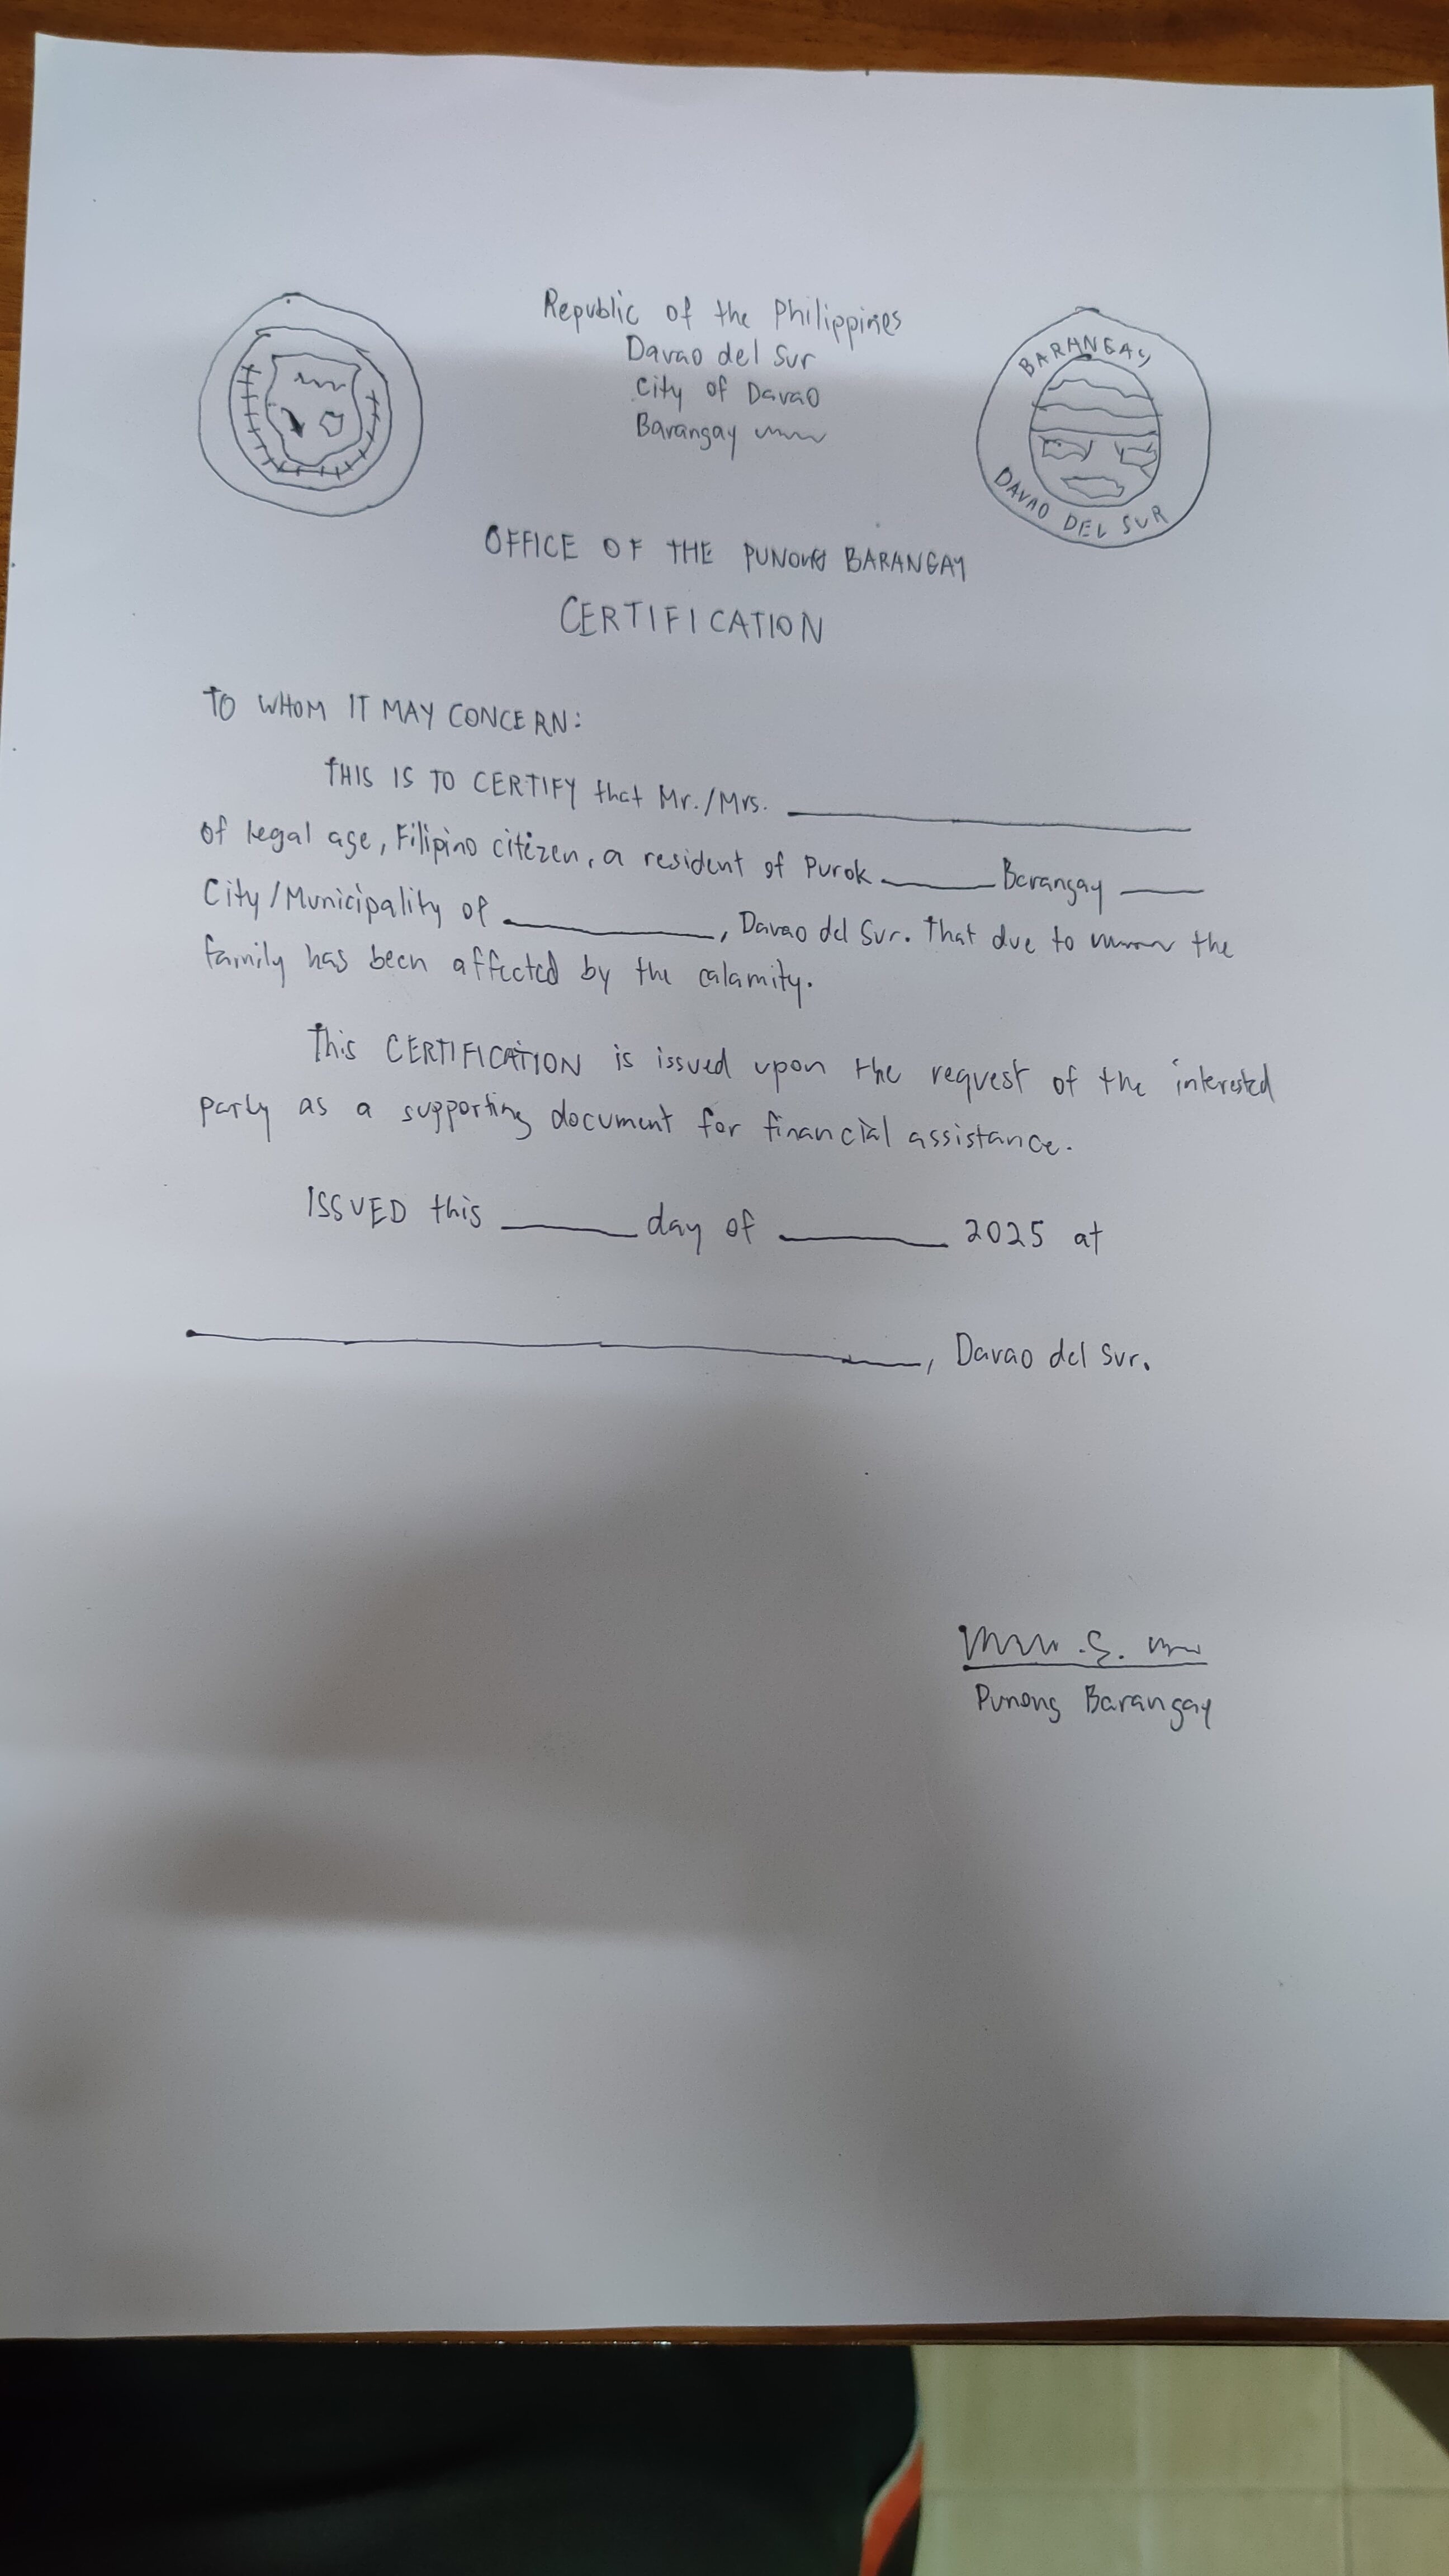 Republic of the Philippines
Davao del Sur
City of Davao
Barangay
BARANGAY
DAVAO DEL SUR
OFFICE OF THE PUNONG BARANGAY
CERTIFICATION
TO WHOM IT MAY CONCERN:
THIS IS TO CERTIFY that Mr./Mrs. ____________
of legal age, Filipino citizen, a resident of Purok ______ Barangay ____
City/Municipality of __________, Davao del Sur. That due to the
family has been affected by the calamity.
This CERTIFICATION is issued upon the request of the interested
party as a supporting document for financial assistance.
ISSUED this ______ day of ________ 2025 at
____________________, Davao del Sur.
S.
Punong Barangay